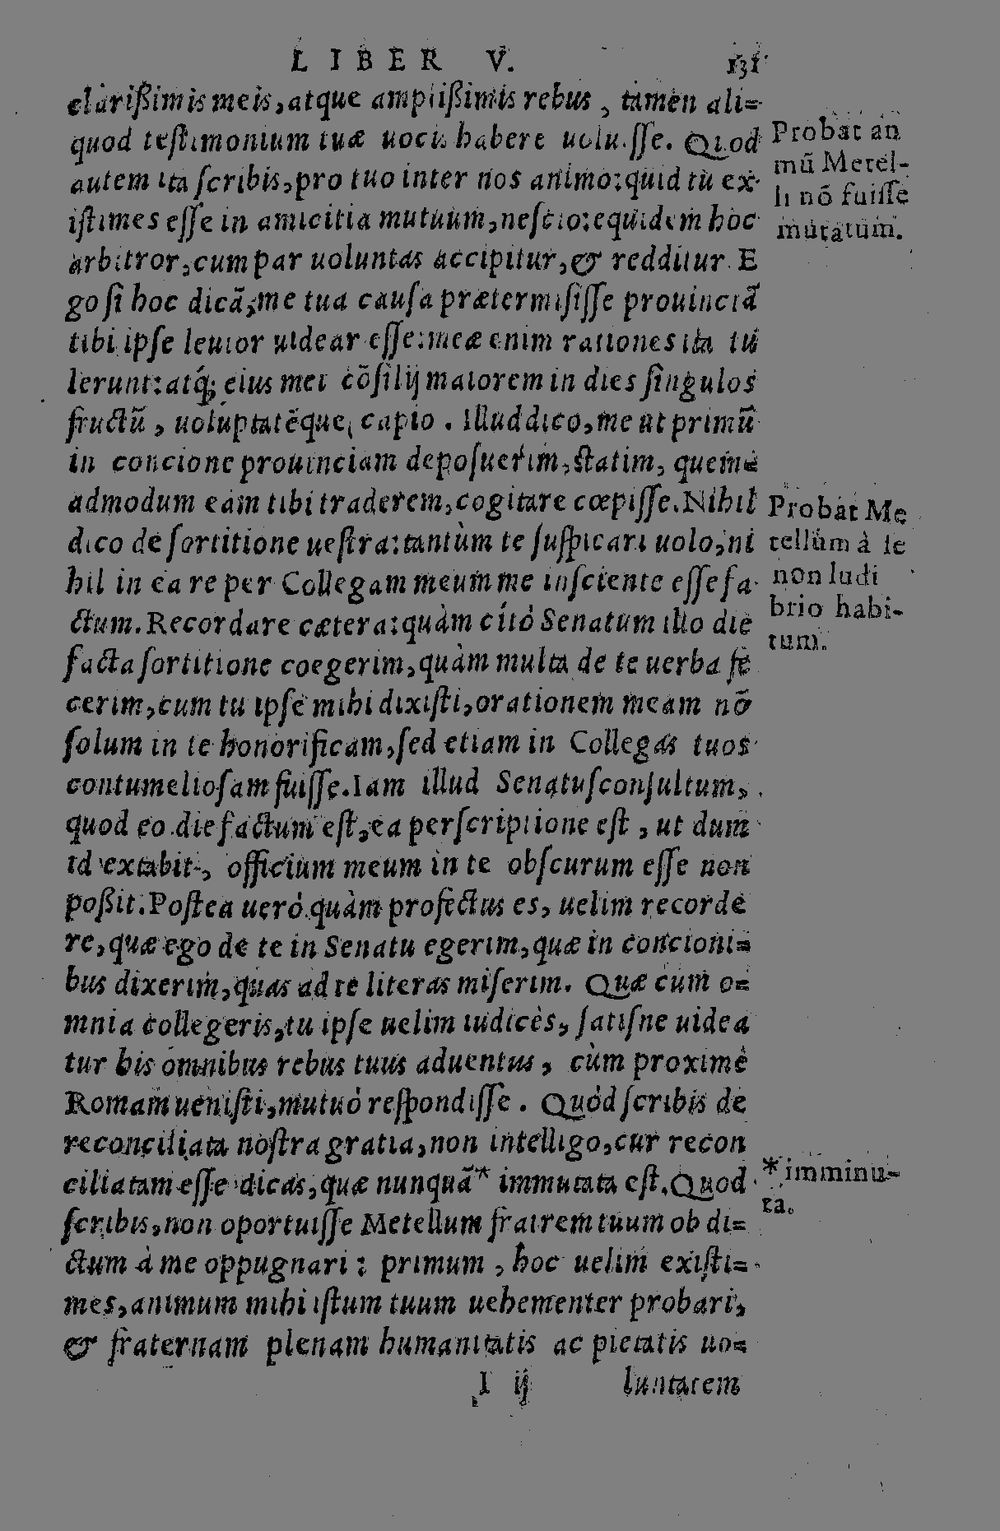 LIBER V. 131
clarißimis meis, atque amplißimis rebus, tamen ali=
quod testimonium tuæ uocis habere uoluisse. Quod
autem ita scribis, pro tuo inter nos animo: quid tu ex-
istimes esse in amicitia mutuum, nescio: equidem hoc
arbitror, cum par uoluntas accipitur, & redditur. E
go si hoc dicã, me tua causa prætermisisse prouinciã
tibi ipse leuior uidear esse: meæ enim rationes ita tu
lerunt: atq́; eius mei cõsilij maiorem in dies singulos
fructũ, uoluptatẽque, capio. Illud dico, me ut primũ
in concione prouinciam deposuerim, statim, quem=
admodum eam tibi traderem, cogitare cœpisse. Nihil
dico de sortitione uestra: tantùm te suspicari uolo, ni
hil in ea re per Collegam meum me insciente esse fa-
ctum. Recordare cætera: quàm citò Senatum illo die
facta sortitione coegerim, quàm multa de te uerba fe
cerim, cum tu ipse mihi dixisti, orationem meam nõ
solum in te honorificam, sed etiam in Collegas tuos
contumeliosam fuisse. Iam illud Senatusconsultum,
quod eo die factum est, ea perscriptione est, ut dum
id extabit, officium meum in te obscurum esse non
poßit. Postea uerò quàm profectus es, uelim recorde
re, quæ ego de te in Senatu egerim, quæ in concioni=
bus dixerim, quas ad te literas miserim. Quæ cum o=
mnia collegeris, tu ipse uelim iudicès, satisne uidea
tur his omnibus rebus tuus aduentus, cùm proximè
Romam uenisti, mutuò respondisse. Quòd scribis de
reconciliata nostra gratia, non intelligo, cur recon
ciliatam esse dicas, quæ nunquã * immutata est. Quod
scribis, non oportuisse Metellum fratrem tuum ob di=
ctum à me oppugnari: primum, hoc uelim existi=
mes, animum mihi istum tuum uehementer probari,
& fraternam plenam humanitatis ac pietatis uo=
I ij luntatem
Probat an
mũ Metel-
li nõ fuisse
mutatum.
Probat Me
tellum à se
non ludi
brio habi-
tum.
* imminu-
ta.